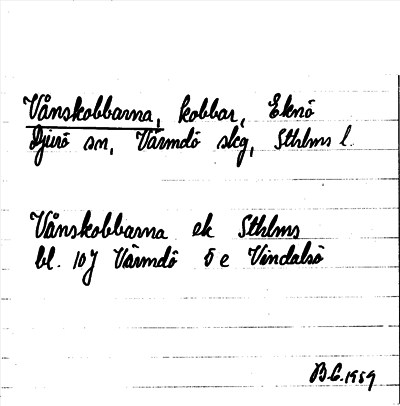 Vånskobbarna, kobbar, Eknö
Djurö sn, Värmdö skg, Sthlms l.
Vånskobbarna ek Sthlms
bl. 10J Värmdö 5 e Vindalsö
B.G. 1959